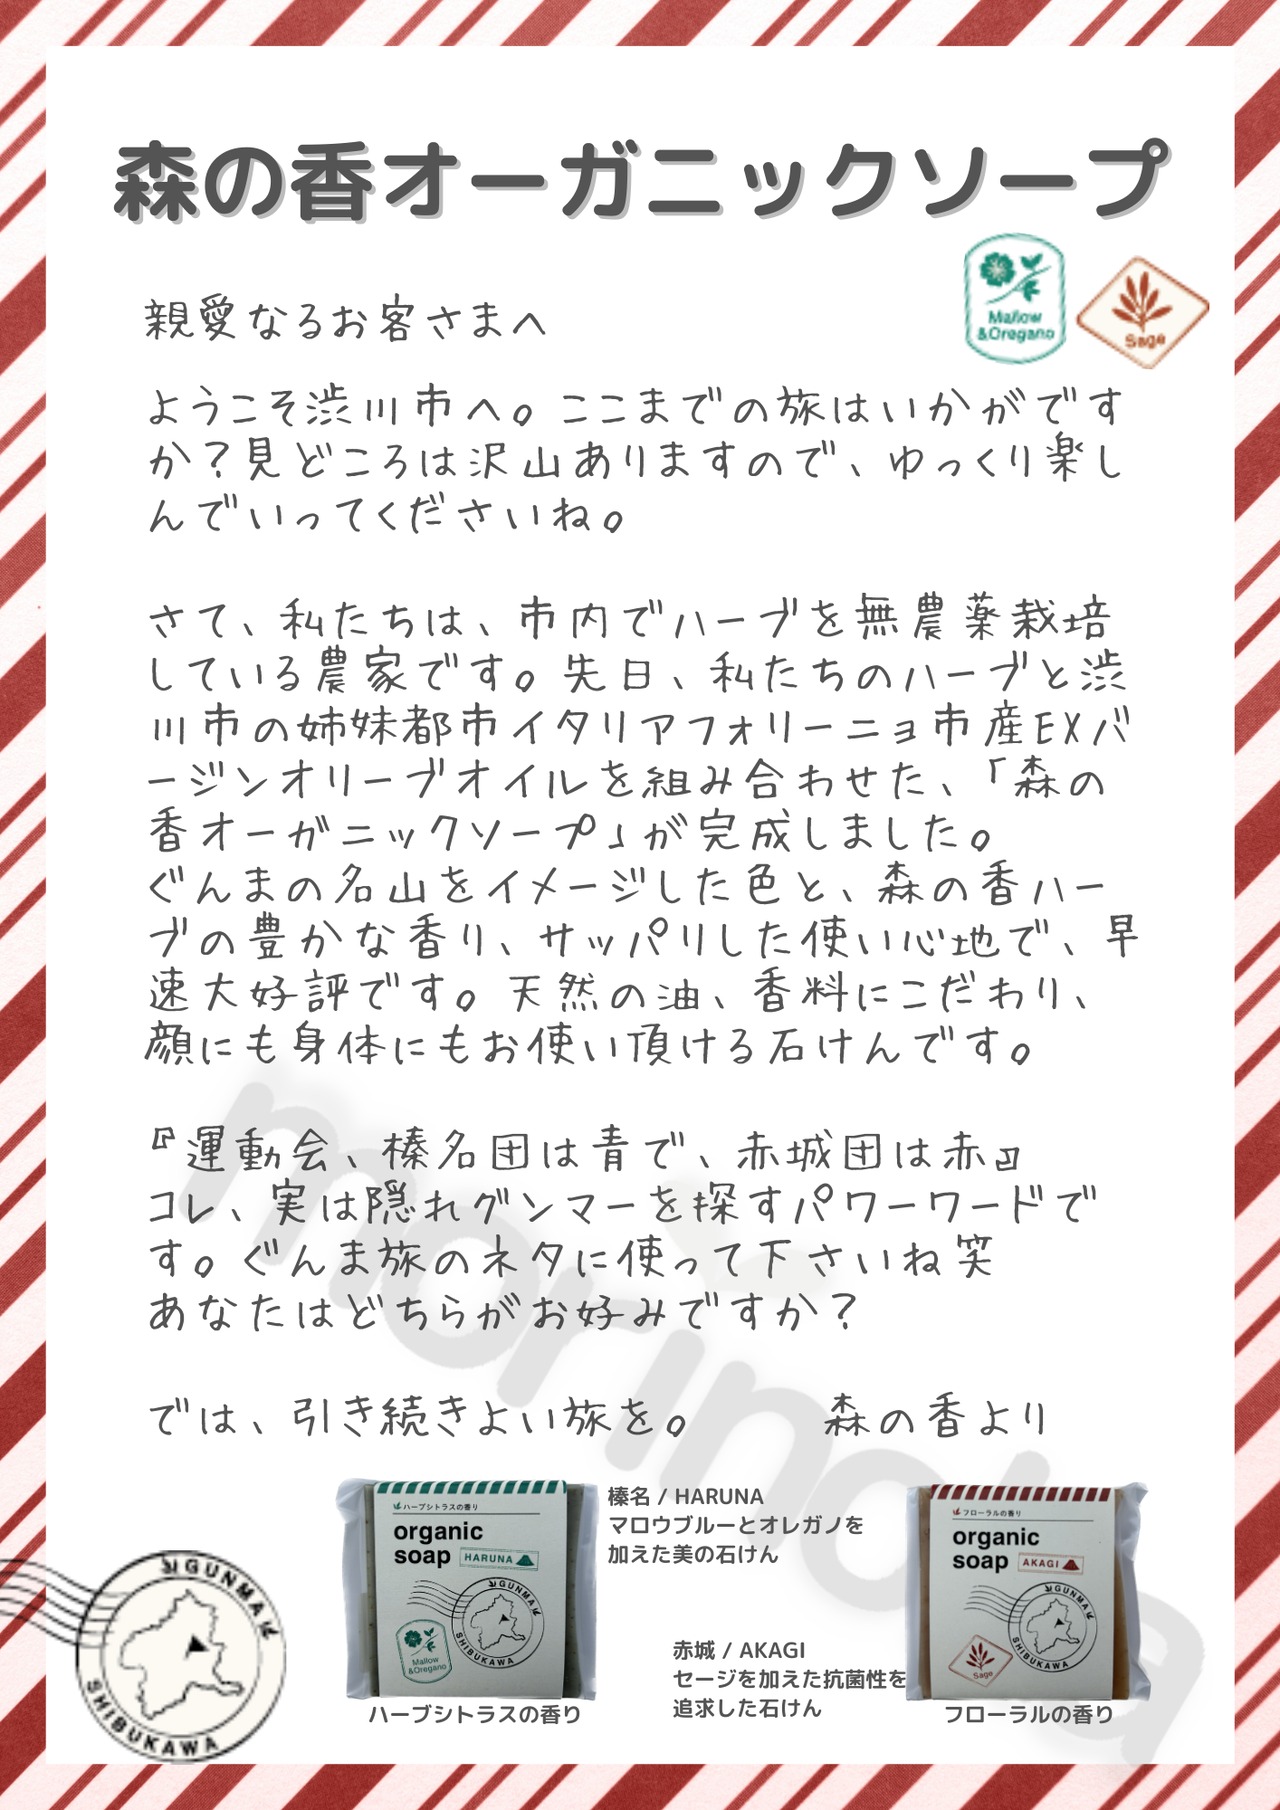 森の香オーガニックソープ
Mallow
&Oregano
Sage
親愛なるお客さまへ
ようこそ渋川市へ。ここまでの旅はいかがです
か？見どころは沢山ありますので、ゆっくり楽し
んでいってくださいね。
さて、私たちは、市内でハーブを無農薬栽培
している農家です。先日、私たちのハーブと渋
川市の姉妹都市イタリアフォリーニョ市産EXバ
ージンオリーブオイルを組み合わせた、「森の
香オーガニックソープ」が完成しました。
ぐんまの名山をイメージした色と、森の香ハー
ブの豊かな香り、サッパリした使い心地で、早
速大好評です。天然の油、香料にこだわり、
顔にも身体にもお使い頂ける石けんです。
『運動会、榛名団は青で、赤城団は赤』
コレ、実は隠れグンマーを探すパワーワードで
す。ぐんま旅のネタに使って下さいね笑
あなたはどちらがお好みですか？
では、引き続きよい旅を。 森の香より
morinoka
ハーブシトラスの香り
organic
soap HARUNA
GUNMA
SHIBUKAWA
Mallow
&Oregano
ハーブシトラスの香り
榛名 / HARUNA
マロウブルーとオレガノを
加えた美の石けん
赤城 / AKAGI
セージを加えた抗菌性を
追求した石けん
フローラルの香り
organic
soap AKAGI
GUNMA
SHIBUKAWA
Sage
フローラルの香り
GUNMA
SHIBUKAWA